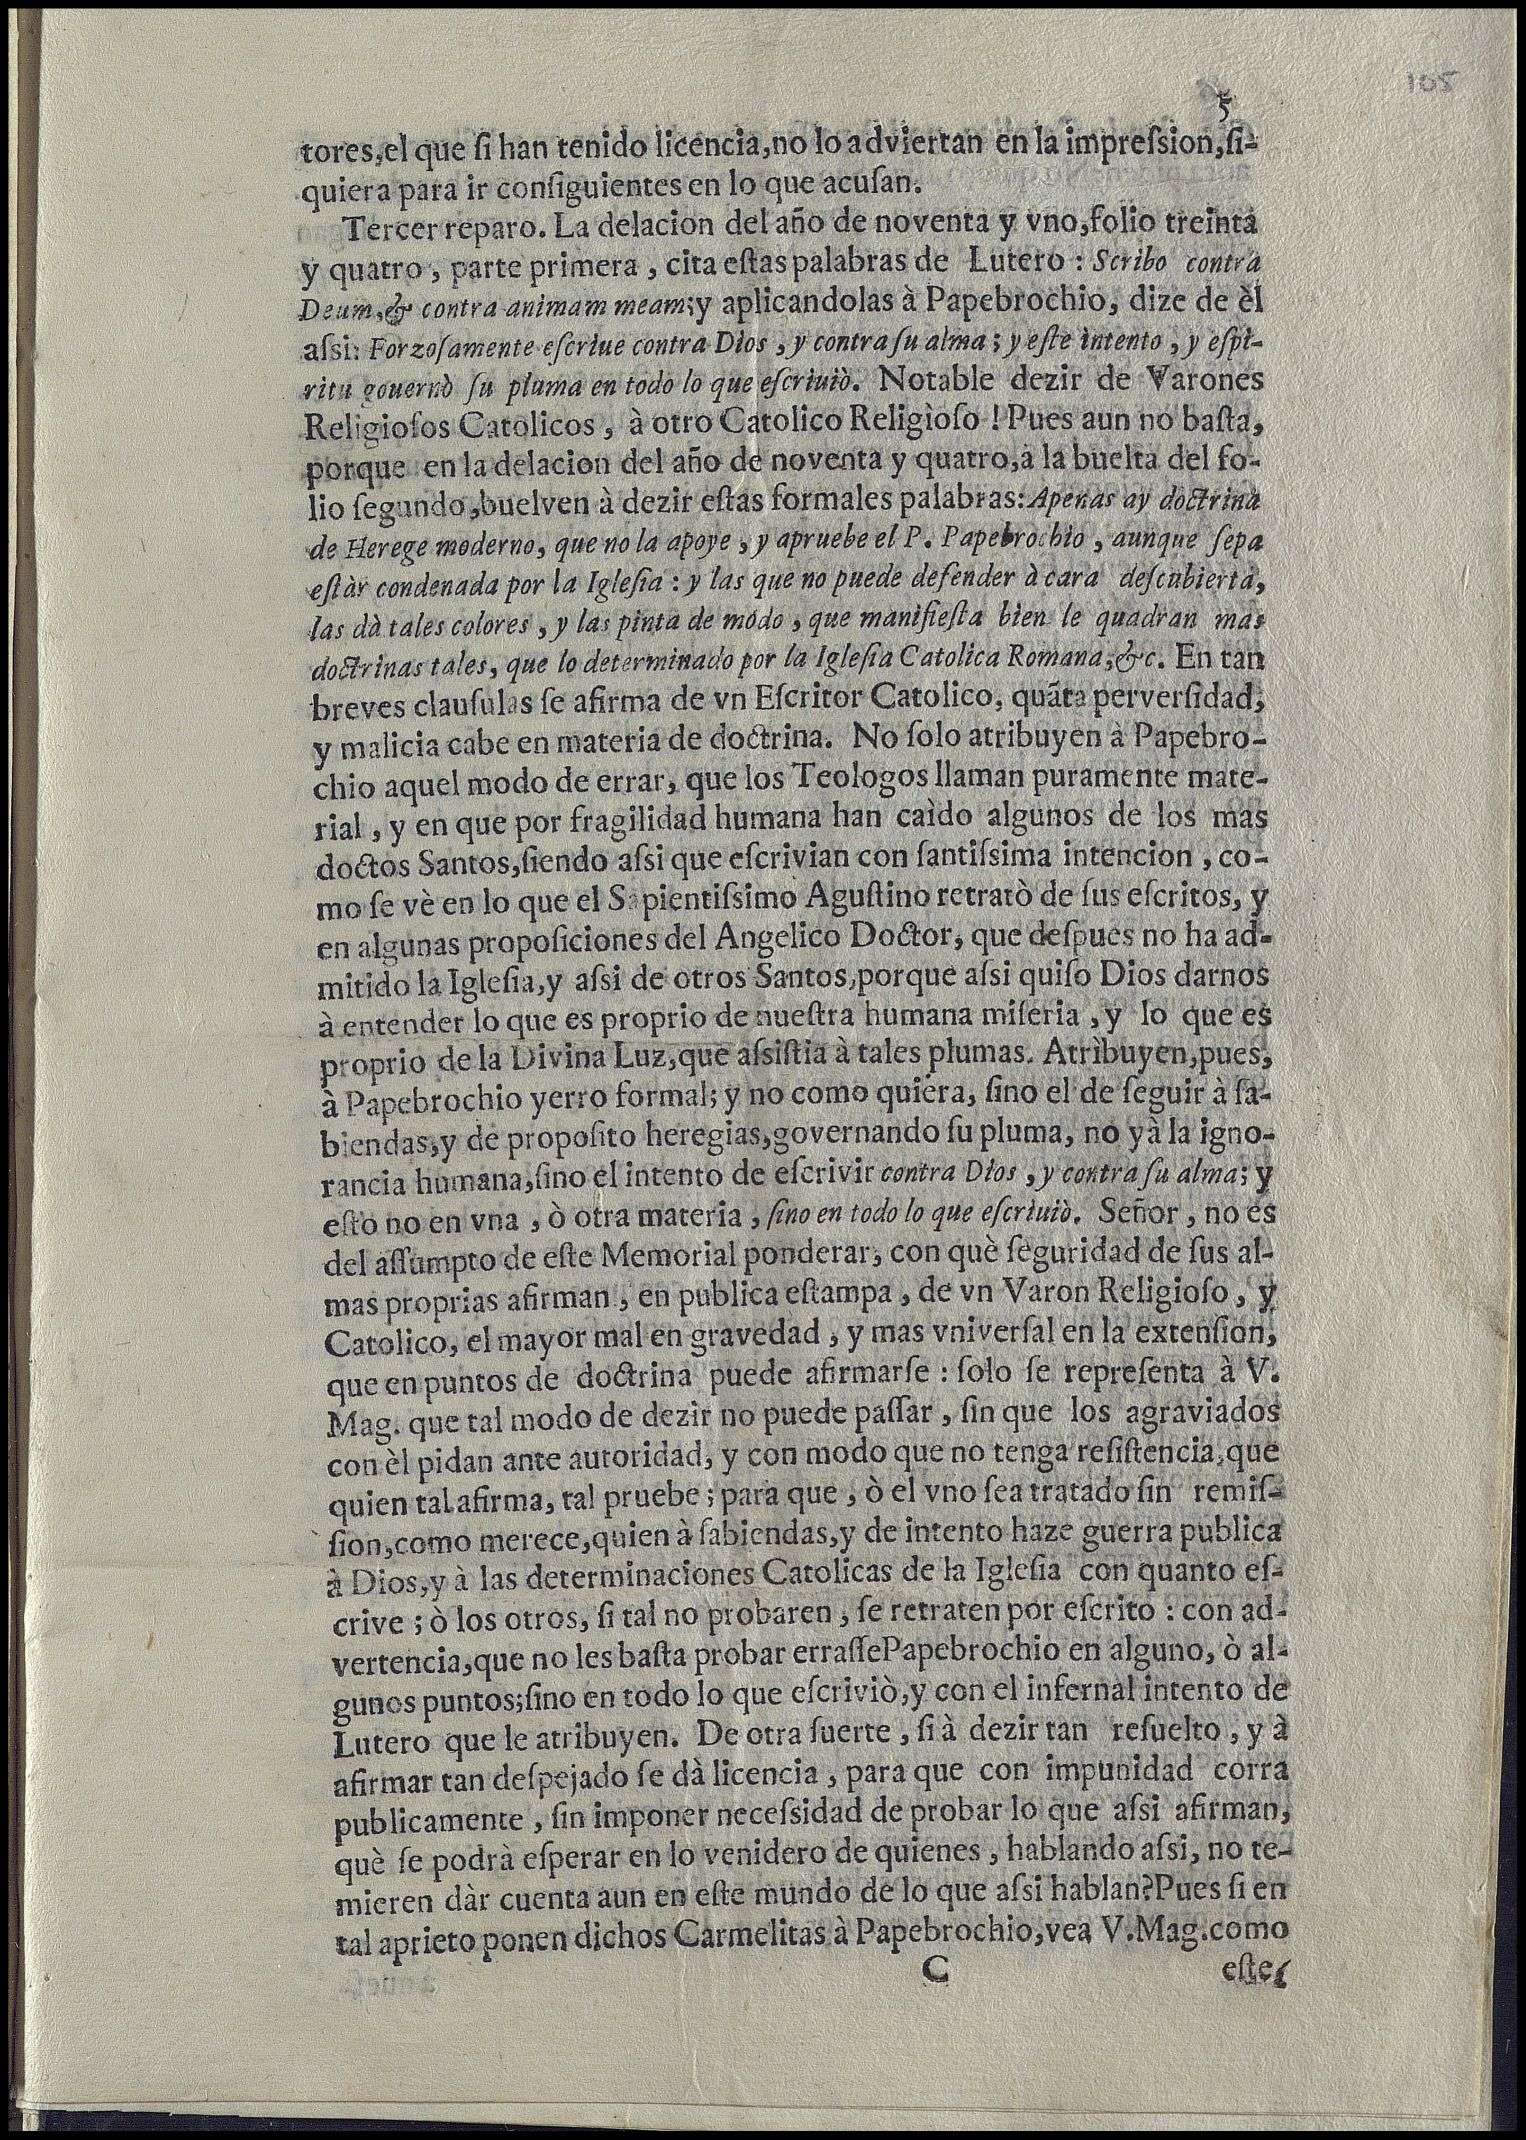 105
5
tores, el que ſi han tenido licencia, no lo adviertan en la impreſsion, ſi-
quiera para ir conſiguientes en lo que acuſan.
Tercer reparo. La delacion del año de noventa y vno, folio treinta
y quatro, parte primera, cita eſtas palabras de Lutero: Scribo contra
Deum, & contra animam meam; y aplicandolas à Papebrochio, dize de èl
aſsi: Forzoſamente eſcriue contra Dios, y contra ſu alma; y eſte intento, y eſpi-
ritu gouernò ſu pluma en todo lo que eſcriuiò. Notable dezir de Varones
Religioſos Catolicos, à otro Catolico Religioſo! Pues aun no baſta,
porque en la delacion del año de noventa y quatro, à la buelta del fo-
lio ſegundo, buelven à dezir eſtas formales palabras: Apenas ay doctrina
de Herege moderno, que no la apoye, y apruebe el P. Papebrochio, aunque ſepa
eſtàr condenada por la Igleſia: y las que no puede defender à cara deſcubierta,
las dà tales colores, y las pinta de modo, que manifieſta bien le quadran mas
doctrinas tales, que lo determinado por la Igleſia Catolica Romana, &c. En tan
breves clauſulas ſe afirma de vn Eſcritor Catolico, quãta perverſidad,
y malicia cabe en materia de doctrina. No ſolo atribuyen à Papebro-
chio aquel modo de errar, que los Teologos llaman puramente mate-
rial, y en que por fragilidad humana han caìdo algunos de los mas
doctos Santos, ſiendo aſsi que eſcrivian con ſantiſsima intencion, co-
mo ſe vè en lo que el Sapientiſsimo Aguſtino retratò de ſus eſcritos, y
en algunas propoſiciones del Angelico Doctor, que deſpues no ha ad-
mitido la Igleſia, y aſsi de otros Santos, porque aſsi quiſo Dios darnos
à entender lo que es proprio de nueſtra humana miſeria, y lo que es
proprio de la Divina Luz, que aſsiſtia à tales plumas. Atribuyen, pues,
à Papebrochio yerro formal; y no como quiera, ſino el de ſeguir à ſa-
biendas, y de propoſito heregias, governando ſu pluma, no yà la igno-
rancia humana, ſino el intento de eſcrivir contra Dios, y contra ſu alma; y
eſto no en vna, ò otra materia, ſino en todo lo que eſcriuiò. Señor, no es
del aſſumpto de eſte Memorial ponderar, con què ſeguridad de ſus al-
mas proprias afirman, en publica eſtampa, de vn Varon Religioſo, y
Catolico, el mayor mal en gravedad, y mas vniverſal en la extenſion,
que en puntos de doctrina puede afirmarſe: ſolo ſe repreſenta à V.
Mag. que tal modo de dezir no puede paſſar, ſin que los agraviados
con èl pidan ante autoridad, y con modo que no tenga reſiſtencia, que
quien tal afirma, tal pruebe; para que, ò el vno ſea tratado ſin remiſ-
ſion, como merece, quien à ſabiendas, y de intento haze guerra publica
à Dios, y à las determinaciones Catolicas de la Igleſia con quanto eſ-
crive; ò los otros, ſi tal no probaren, ſe retraten por eſcrito: con ad-
vertencia, que no les baſta probar erraſſe Papebrochio en alguno, ò al-
gunos puntos; ſino en todo lo que eſcriviò, y con el infernal intento de
Lutero que le atribuyen. De otra ſuerte, ſi à dezir tan reſuelto, y à
afirmar tan deſpejado ſe dà licencia, para que con impunidad corra
publicamente, ſin imponer neceſsidad de probar lo que aſsi afirman,
què ſe podrà eſperar en lo venidero de quienes, hablando aſsi, no te-
mieren dàr cuenta aun en eſte mundo de lo que aſsi hablan? Pues ſi en
tal aprieto ponen dichos Carmelitas à Papebrochio, vea V. Mag. como
C
eſte